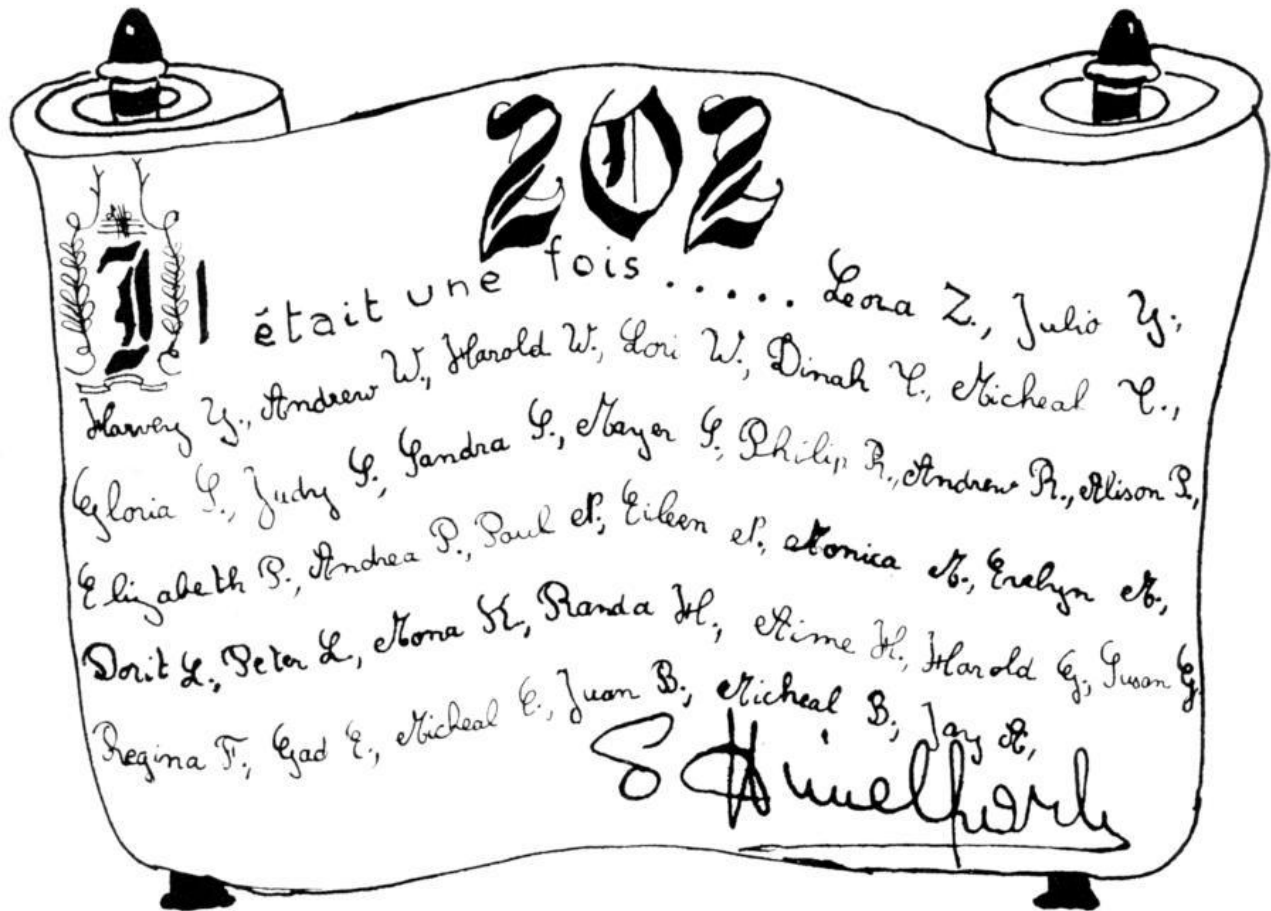 202
Il était une fois ..... Leora Z., Julio Y.,
Harvey Y., Andrew W., Harold W., Lori W., Dinah T., Micheal T.,
Gloria S., Judy S., Sandra S., Mayer S., Philip R., Andrew R., Alison P.,
Elizabeth P., Andrea P., Paul N., Eileen N., Monica M., Evelyn M.,
Dorit L., Peter L., Mona K., Randa H., Aime H., Harold G., Susan G.
Regina F., Gad E., Micheal E., Juan B., Micheal B., Jay A.,
S